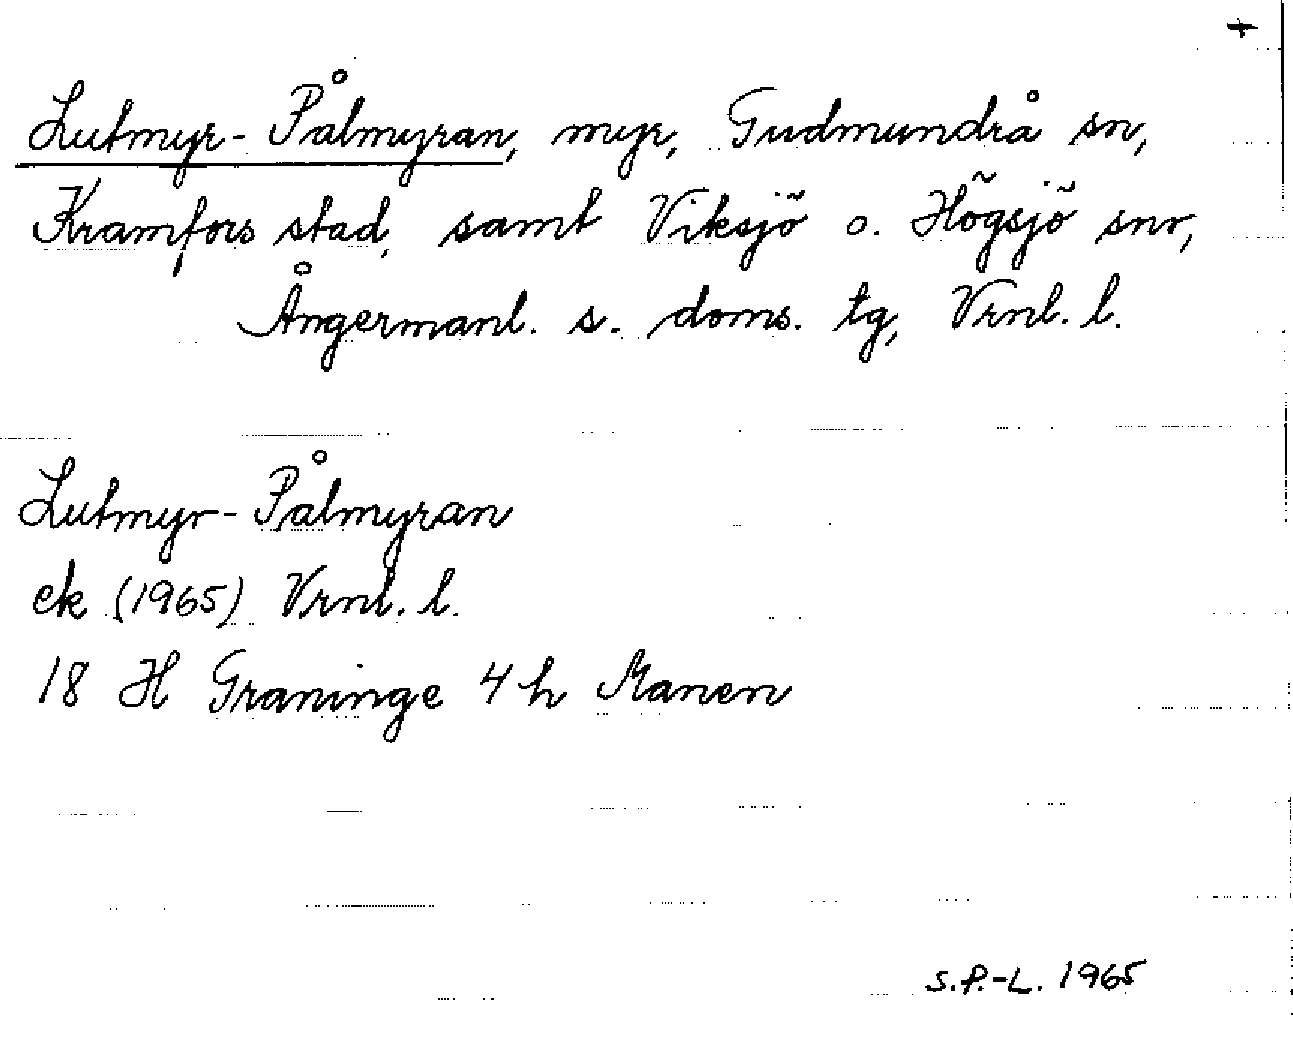 +
Lutmyr-Pålmyran, myr, Gudmundrå sn,
Kramfors stad, samt Viksjö o. Högsjö snr,
Ångermanl. s. doms. tg, Vrnl. l.
Lutmyr-Pålmyran
ek (1965) Vrnl. l.
18 H Graninge 4 h Manen
S.P.-L. 1965